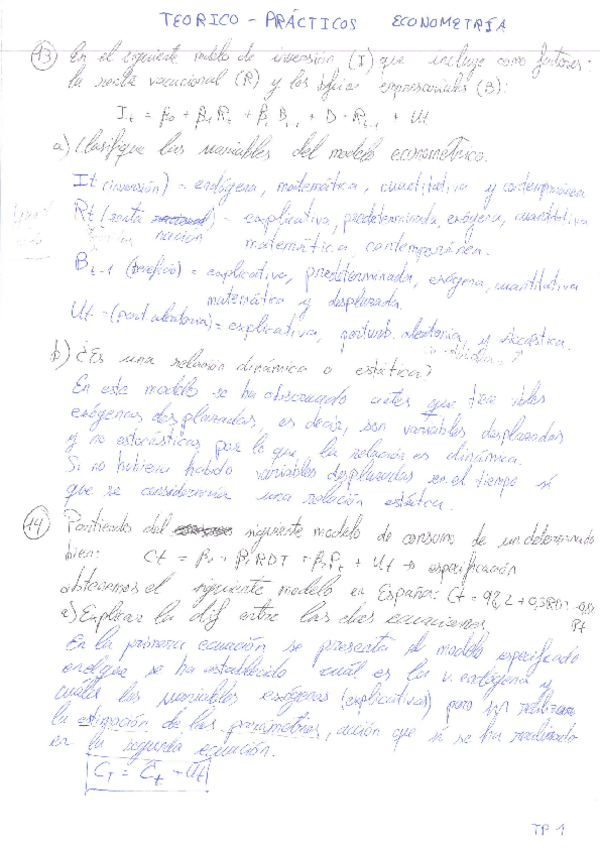 TEORICO - PRÁCTICOS ECONOMETRÍA
13) En el siguiente modelo de inversión (I) que incluye como factores:
la renta nacional (R) y los empresariales (B):
It = β0 + β1 Rt + β2 Bt-1 + D · Rt-1 + Ut
a) Clasifique las variables del modelo econométrico.
It (inversión) = endógena, matemática, cuantitativa y contemporánea
Rt (renta nación) = explicativa, predeterminada, exógena, cuantitativa
matemática, contemporánea.
Bt-1 (beneficio) = explicativa, predeterminada, exógena, cuantitativa
matemática y desplazada.
Ut = (pert aleatoria) = explicativa, perturb. aleatoria y
b) ¿Es una relación dinámica o estática?
En este modelo se ha observado que tiene vbles
exógenas desplazadas, es decir, son variables desplazadas
y no estocásticas por lo que, la relación es dinámica.
Si no hubiera habido variables desplazadas en el tiempo sí
que se consideraría una relación estática.
14) Partiendo del siguiente modelo de consumo de un determinado
bien: Ct = β0 + β1 RDT + β2 Pt + Ut → especificación
obtenemos el siguiente modelo en España: Ct = 98,2 +
Pt
a) Explicar la dif entre las dos ecuaciones,
En la primera ecuación se presenta el modelo especificado
en el que se ha establecido cuál es la v. endógena y
cuáles las variables exógenas (explicativas) pero sin realizar
la estimación de los parámetros, acción que sí se ha realizado
en la segunda ecuación.
Ct = Ĉt - Ut
TP 1